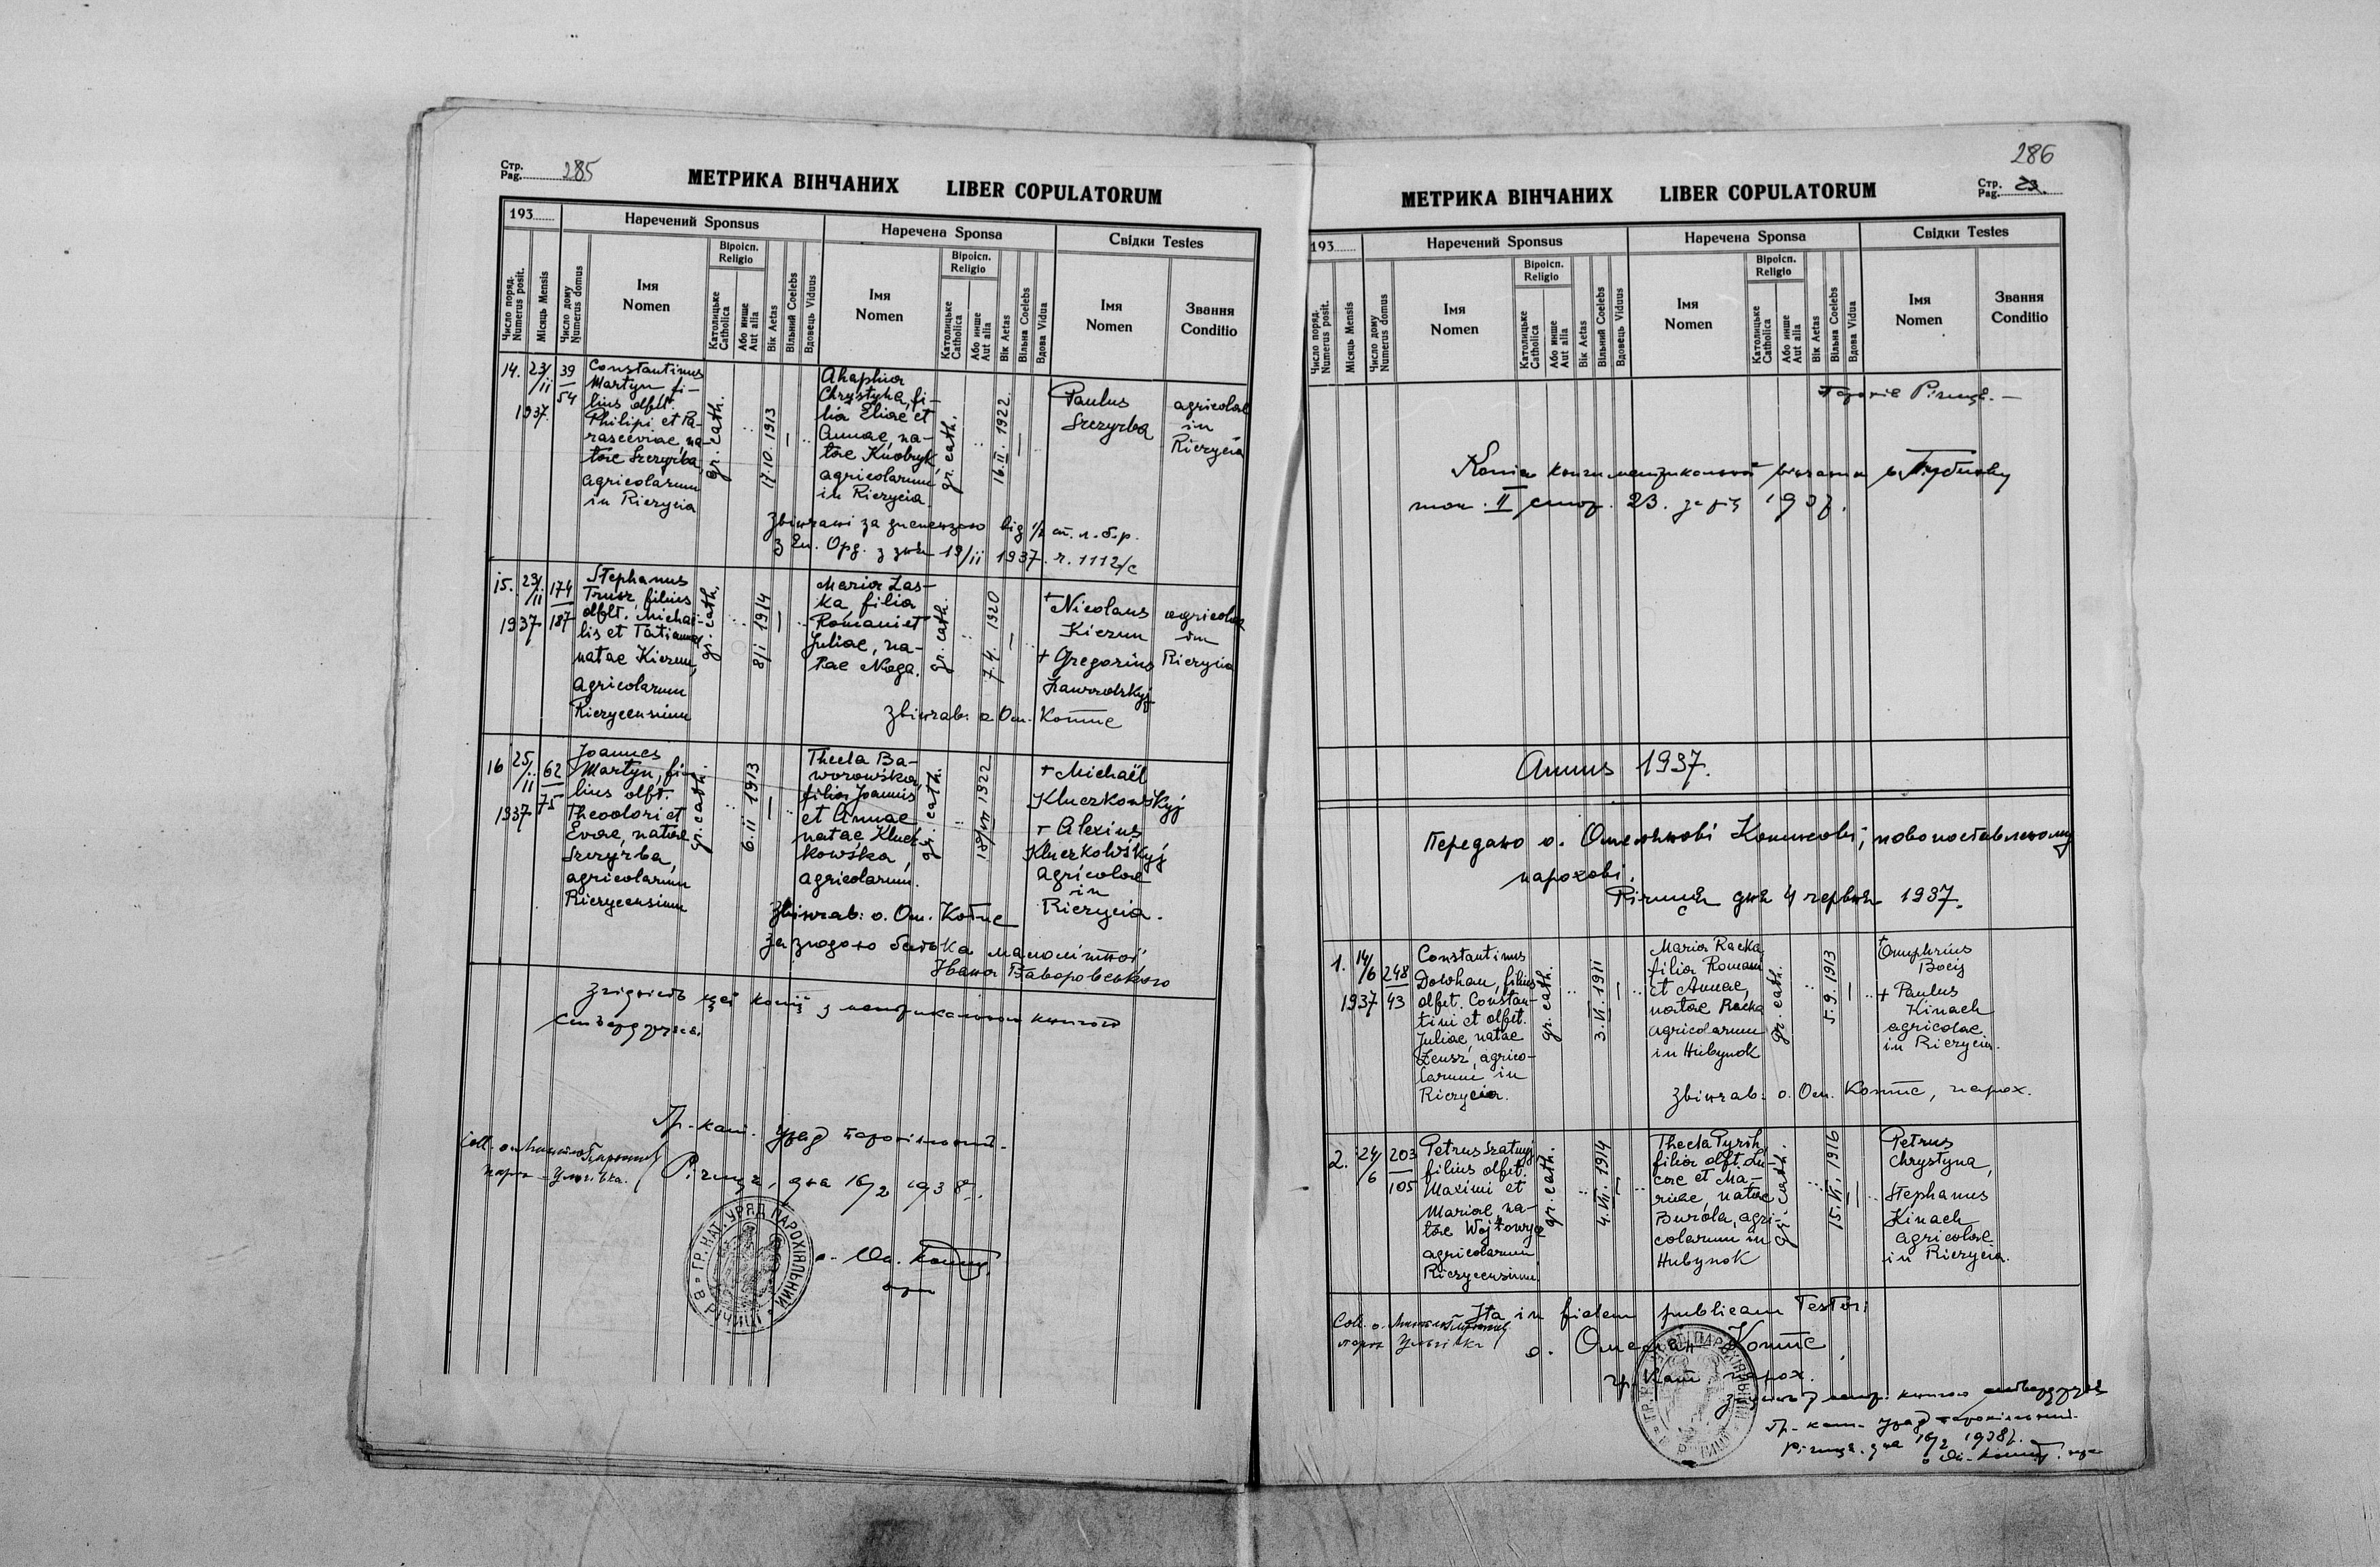 Стр.
Pag. 285
МЕТРИКА ВІНЧАНИХ LIBER COPULATORUM
193
Наречений Sponsus
Наречена Sponsa
Свідки Testes
Число поряд.
Numerus posit.
Місяць Mensis
Число дому
Numerus domus
Імя
Nomen
Віроісп.
Religio
Католицьке
Catholica
Або инше
Aut alia
Вік Aetas
Вільний Coelebs
Вдовець Viduus
Імя
Nomen
Віроісп.
Religio
Католицьке
Catholica
Або инше
Aut alia
Вік Aetas
Вільна Coelebs
Вдова Vidua
Імя
Nomen
Звання
Conditio
14.
23/II
1937.
39
54
Constantinus
Martyn, fi-
lius dfct.
Philipi et Pa-
rasceviae, na-
tae Szczyrba,
agricolarum
in Riczycia
gr. cath.
17.10.1913
Ahaphia
Chrystyna, fi-
lia Eliae et
Annae, na-
tae
agricolarum
in Riczycia
gr. cath.
16.II.1922
Paulus
Szczyrba
agricolae
in
Riczycia
Звінчані за диспензою від
з Еп. Орд. з дня 19/II 1937. ч. 1112/с
15.
23/II
1937
174
187
Stephanus
Trusz, filius
dfct. Michae-
lis et Tatianna
natae Kiczun,
agricolarum
Riczycensium
gr. cath.
8/I 1914
Maria Las-
ka, filia
Romani et
Juliae, na-
tae Noga.
gr. cath.
7.4.1920
+ Nicolaus
Kiczun
+ Gregorius
Zawordzkyj
agricolae
in
Riczycia
Звінчав: о. Ом. Копис
16
25/II
1937
62
75
Joannes
Martyn, fi-
lius dfct.
Theodori et
Evae, natae
Szczyrba,
agricolarum
Riczycensium
gr. cath.
6.II 1913
Thecla Ba-
worowśka,
filia Joannis
et Annae
natae Klucz-
kowśka,
agricolarum.
gr. cath.
18/VII 1922
+ Michaël
Kluczkowśkyj
+ Alexius
Kluczkowśkyj
agricolae
in
Riczycia.
Звінчав: о. Ом. Копис
за згодою батька малолітної
Івана Баворовського
Згідність цеї копії з метрикальною книгою
стверджуєсь.
Гр.-кат. Уряд парохіяльний
Річиця, дня 16/2 1938 р.
ГР. КАТ. УРЯД ПАРОХІЯЛЬНИЙ В РІЧИЦІ
о. Ом. Копис
286
Стр.
Pag. 23.
МЕТРИКА ВІНЧАНИХ LIBER COPULATORUM
193
Наречений Sponsus
Наречена Sponsa
Свідки Testes
Число поряд.
Numerus posit.
Місяць Mensis
Число дому
Numerus domus
Імя
Nomen
Віроісп.
Religio
Католицьке
Catholica
Або инше
Aut alia
Вік Aetas
Вільний Coelebs
Вдовець Viduus
Імя
Nomen
Віроісп.
Religio
Католицьке
Catholica
Або инше
Aut alia
Вік Aetas
Вільна Coelebs
Вдова Vidua
Імя
Nomen
Звання
Conditio
Парохія Річиця. —
Копія книги метрикальної вінчаних
том. II стор. 23. за рік 1937.
Annus 1937.
Передано о. Омелянові Кописові, новопоставленому
парохові.
Річиця дня 4 червня 1937.
1.
14/6
1937
248
43
Constantinus
Dowhan, filius
dfct. Constan-
tini et dfct.
Juliae, natae
Zeusz, agrico-
larum in
Riczycia.
gr. cath.
3.VI.1911
Maria Racka
filia Romani
et Annae,
natae Racka
agricolarum
in Hubynok
gr. cath.
5.9.1913
+ Onuphrius
Bocij
+ Paulus
Kinach
agricolae
in Riczycia.
Звінчав: о. Ом. Копис, парох.
2.
24/6
203
105
Petrus
filius dfct.
Maximi et
Mariae, na-
tae
agricolarum
Riczycensium
gr. cath.
4.VII.1914
Thecla Pyrih,
filia dfct. Lu-
cae et Ma-
riae, natae
Burda, agri-
colarum in
Hubynok
gr. cath.
15.VI.1916
Petrus
Chrystyna,
Stephanus
Kinach
agricolae
in Riczycia.
Ita in fidem publicam Testor:
о. Омелян Копис,
гр. кат. парох.
Гр.-кат. Уряд парохіяльний
Річиця, дня 16/2 1938 р.
о. Ом. Копис